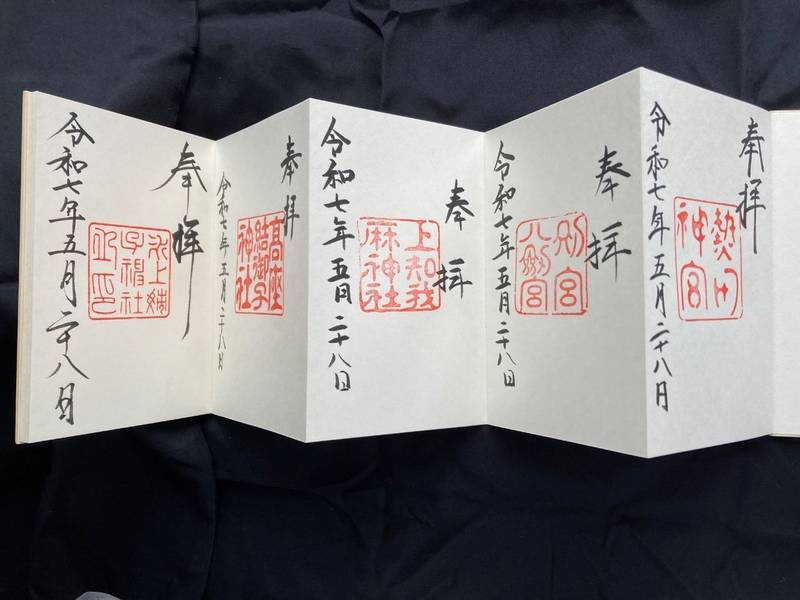 奉拝
熱田
神宮
令和七年五月二十八日
奉拝
別宮
八剱宮
令和七年五月二十八日
奉拝
上知我
麻神社
令和七年五月二十八日
奉拝
髙座
結御子
神社
令和七年五月二十八日
奉拝
氷上姉
子神社
之印
令和七年五月二十八日